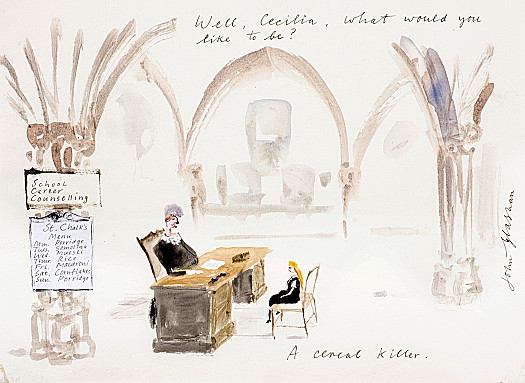 Well, Cecilia, what would you
like to be?
School
Career
Counselling
St. Chalk's
Menu
Mon. Porridge
Tues. Semolina
Wed. Muesli
Thur. Rice
Fri. Macaroni
Sat. Cornflakes
Sun. Porridge
John Glashan
A cereal killer.